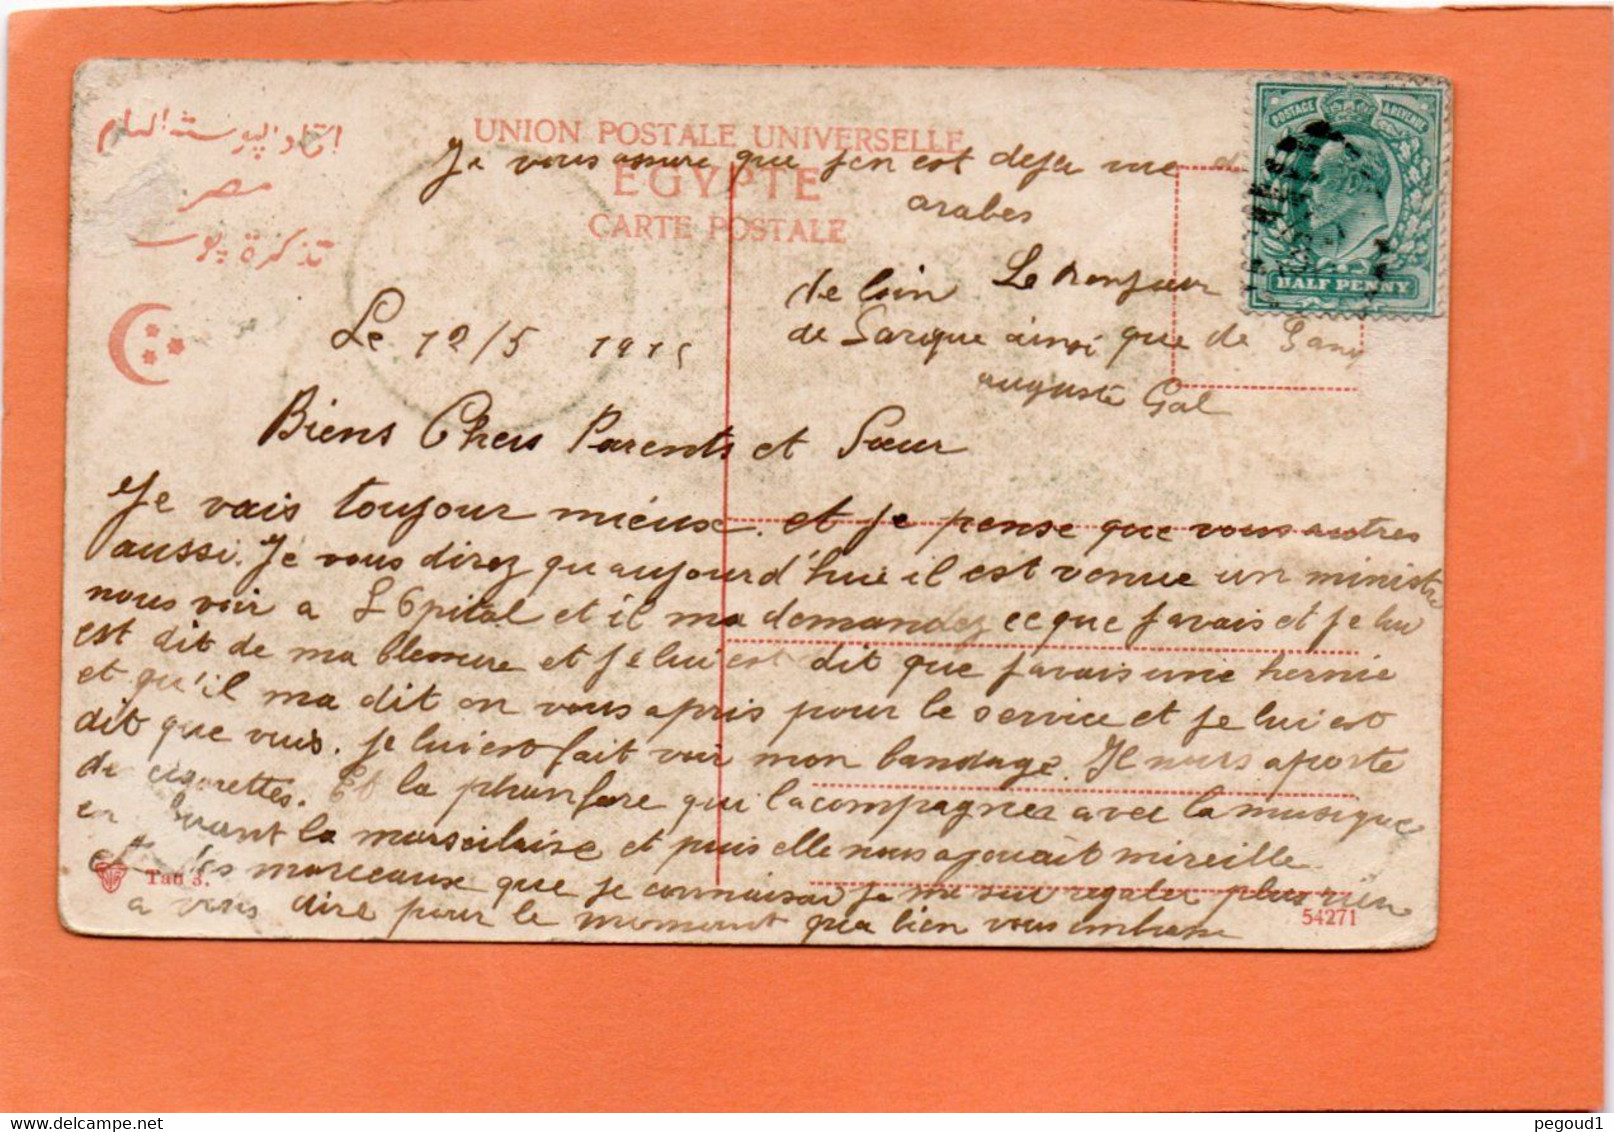 اتحاد البوسته العام
مصر
تذكرة بوسته
UNION POSTALE UNIVERSELLE
EGYPTE
CARTE POSTALE
POSTAGE & REVENUE
HALF PENNY
Je vous assure que j'en est deja vue d
arabes
de loin Le bonjour
de Sarque ainsi que de
auguste Gal
Le 12/5 1915
Biens Chers Parents et Sœur
Je vais toujour mieux. et je pense que vous autres
aussi. Je vous direz qu aujourd'hui il est venue un ministre
nous voir a L Opital et il ma demandez ce que j avais et je lui
est dit de ma blessure et je lui est dit que j avais une hernie
et qu'il ma dit on vous a pris pour le service et je lui est
dit que vuis. je lui est fait voir mon bandage. Il nous a porte
de cigarettes. Et la phanfare qui l acompagnez avec la musique
en jouant la marseilaise et puis elle nous a jouait mireille
et des morceaux que je connaissai je me suis regaler plus rien
a vous dire pour le momant qua bien vous embrasse
Tau 3.
54271
pegoud1